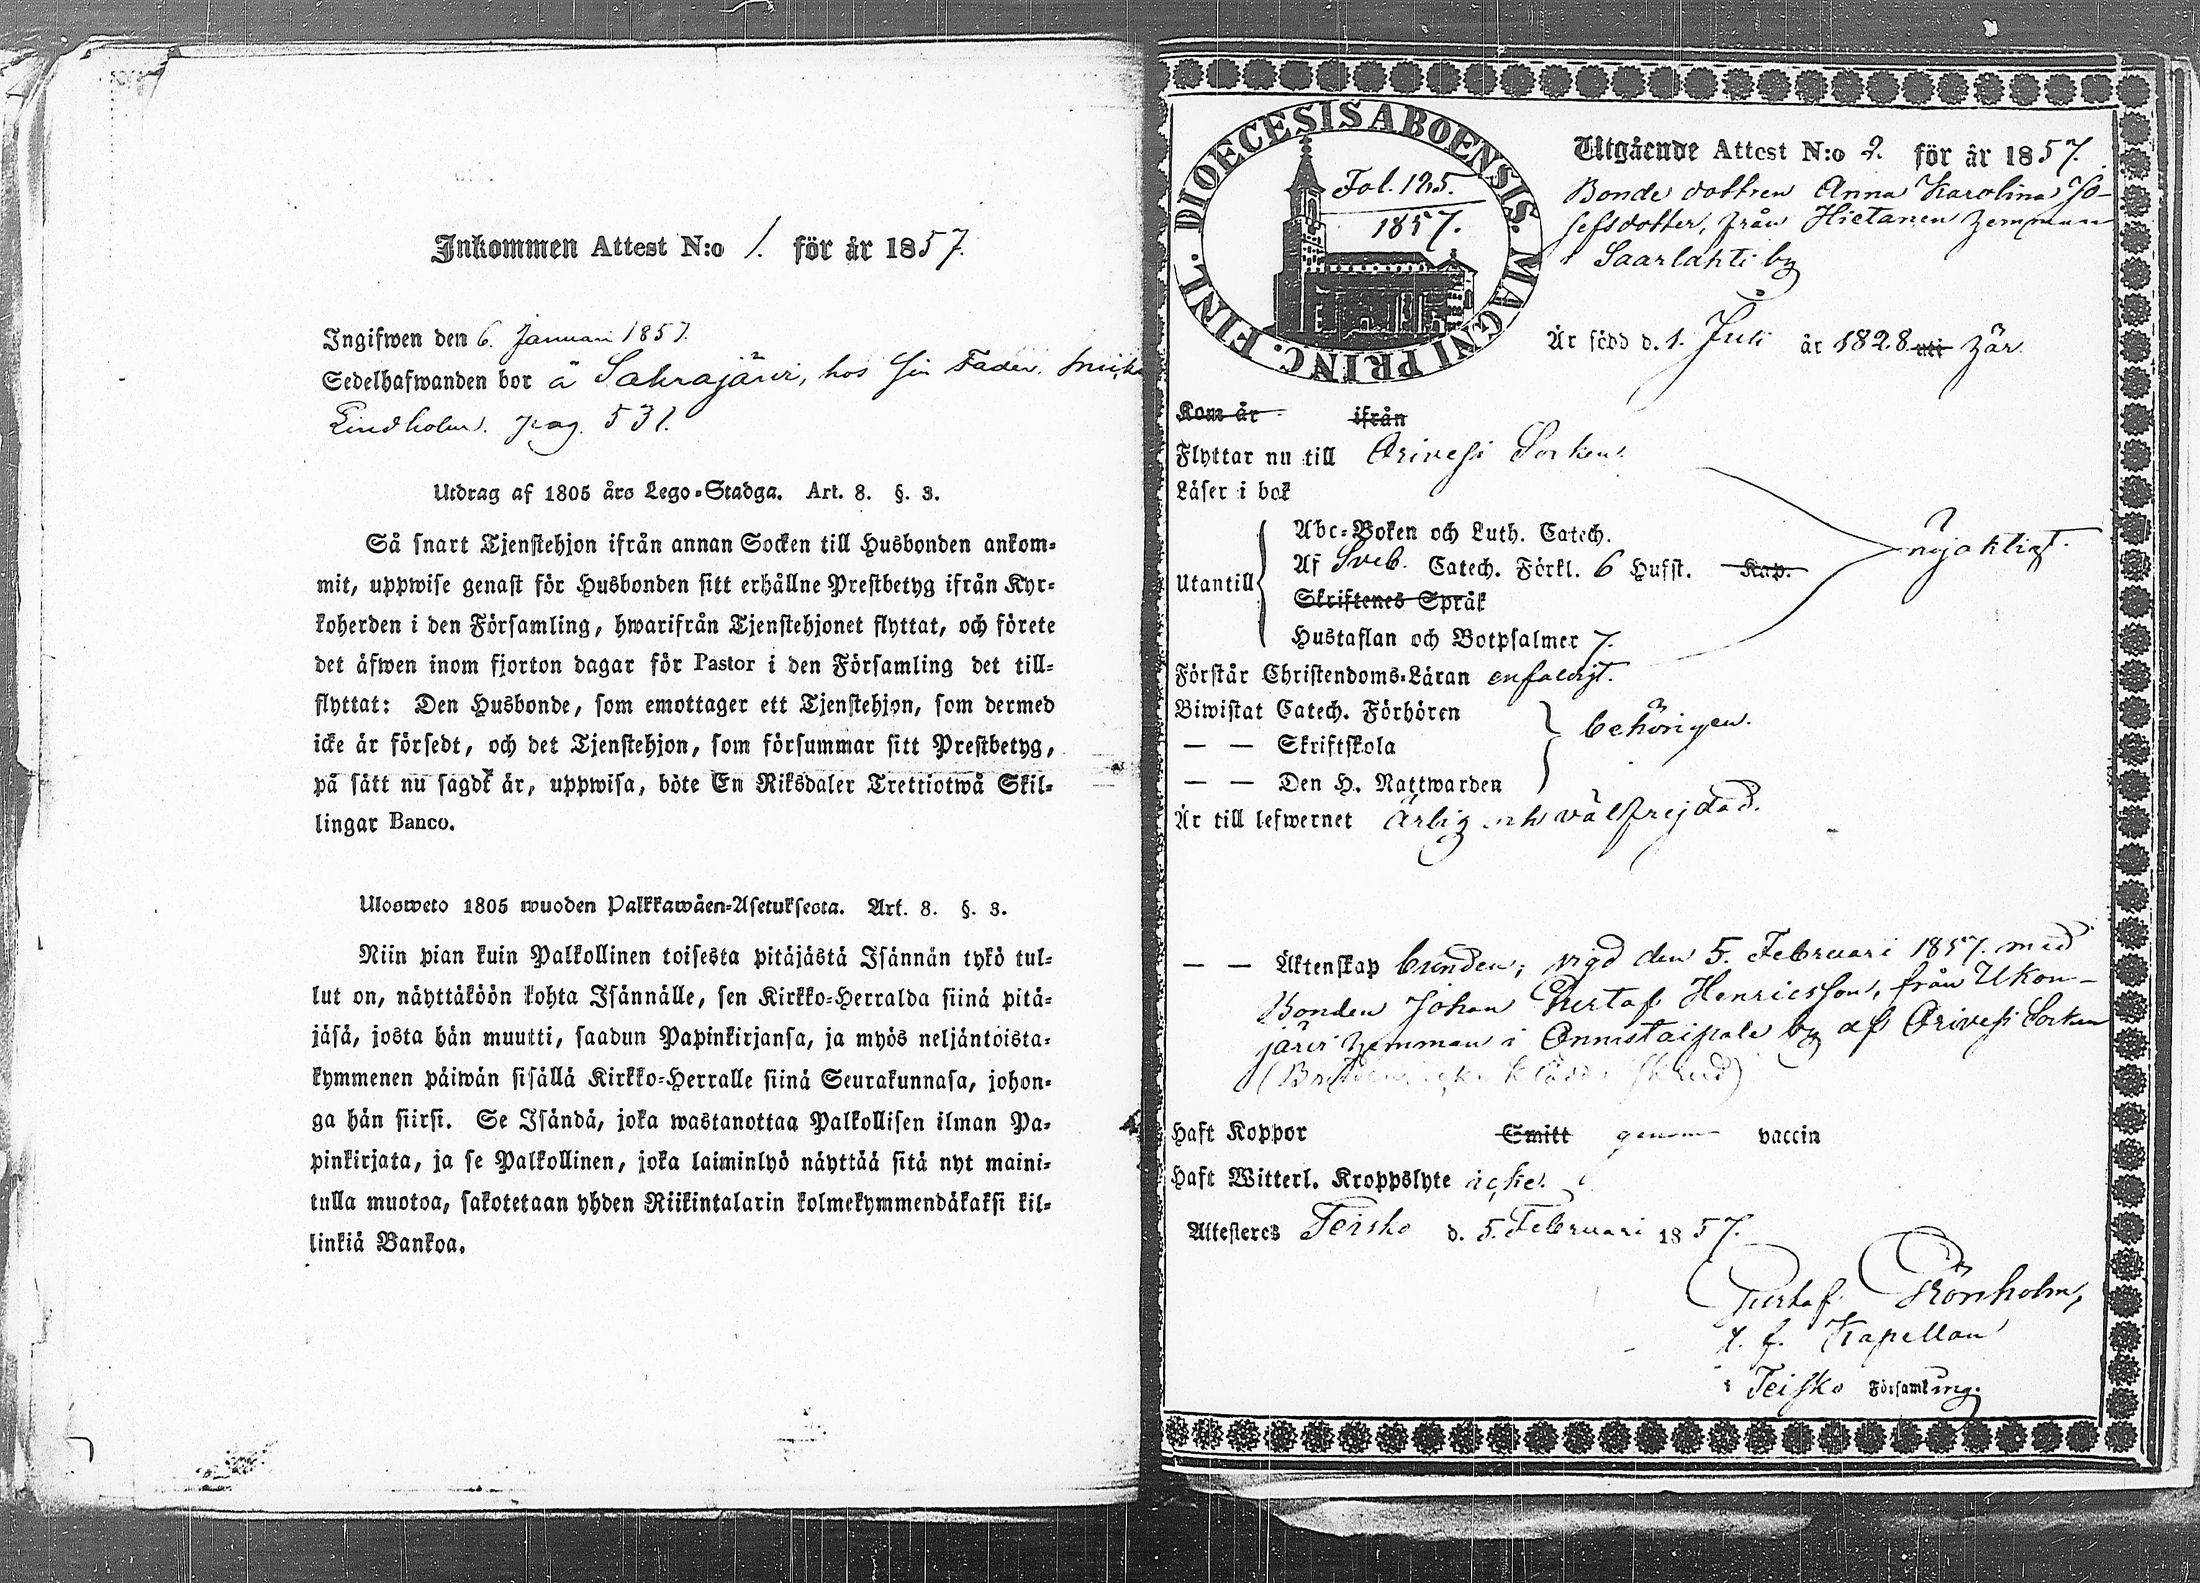 Inkommen Attest N:o 1. för år 1857.
Ingifwen den 6. Januari 1857.
Sedelhafwanden bor å Sahrajärvi, hos sin Fader,
Lindholm. pag. 531.
Utdrag af 1805 års Lego-Stadga. Art. 8. §. 3.
Så snart Tjenstehjon ifrån annan Socken till Husbonden ankom-
mit, uppwise genast för Husbonden sitt erhållne Prestbetyg ifrån Kyr-
koherden i den Församling, hwarifrån Tjenstehjonet flyttat, och förete
det äfwen inom fjorton dagar för Pastor i den Församling det till-
flyttat: Den Husbonde, som emottager ett Tjenstehjon, som dermed
icke är försedt, och det Tjenstehjon, som försummar sitt Prestbetyg,
på sätt nu sagdt är, uppwisa, böte En Riksdaler Trettiotwå Skil-
lingar Banco.
Ulosweto 1805 wuoden Palkkawäen-Asetuksesta. Art. 8. §. 3.
Niin pian kuin Palkollinen toisesta pitäjästä Isännän tykö tul-
lut on, näyttäköön kohta Isännälle, sen Kirkko-Herralda siinä pitä-
jäsä, josta hän muutti, saadun Papinkirjansa, ja myös neljäntoista-
kymmenen päiwän sisällä Kirkko-Herralle siinä Seurakunnasa, johon-
ga hän siirsi. Se Isändä, joka wastanottaa Palkollisen ilman Pa-
pinkirjata, ja se Palkollinen, joka laiminlyö näyttää sitä nyt maini-
tulla muotoa, sakotetaan yhden Riikintalarin kolmekymmendäkaksi kil-
linkiä Bankoa.
DIOECESIS ABOENSIS. MAGNI PRINC. FINL.
Fol. 125.
1857.
Utgående Attest N:o 2. för år 1857.
Bonde dottren Anna Karolina Jo-
sefsdotter, från Hietanen hemman
i Saarlahti by
Är född d. 1. Juli år 1828. uti här.
Kom år ifrån
Flyttar nu till Orivesi Socken.
Läser i bok
Abc-Boken och Luth. Catech.
Utantill Af Sveb. Catech. Förkl. 6 Hufst. Kap. nöjaktigt.
Skriftenes Språk
Hustaflan och Botpsalmer 7.
Förstår Christendoms-Läran enfaldigt.
Biwistat Catech. Förhören
— — Skriftskola behörigen.
— — Den H. Nattwarden
Är till lefwernet ärlig och välfrejdad.
— — Äktenskap bunden; vigd den 5. Februari 1857. med
Bonden Johan Gustaf Henricsson, från Ukon-
järvi hemman i Onnistaipale by af Orivesi Socken
Haft Koppor Smitt genom vaccin
Haft Witterl. Kroppslyte icke.
Attesteres Teisko d. 5. Februari 1857.
Gustaf Grönholm,
t. f. Kapellan
i Teisko Församling.